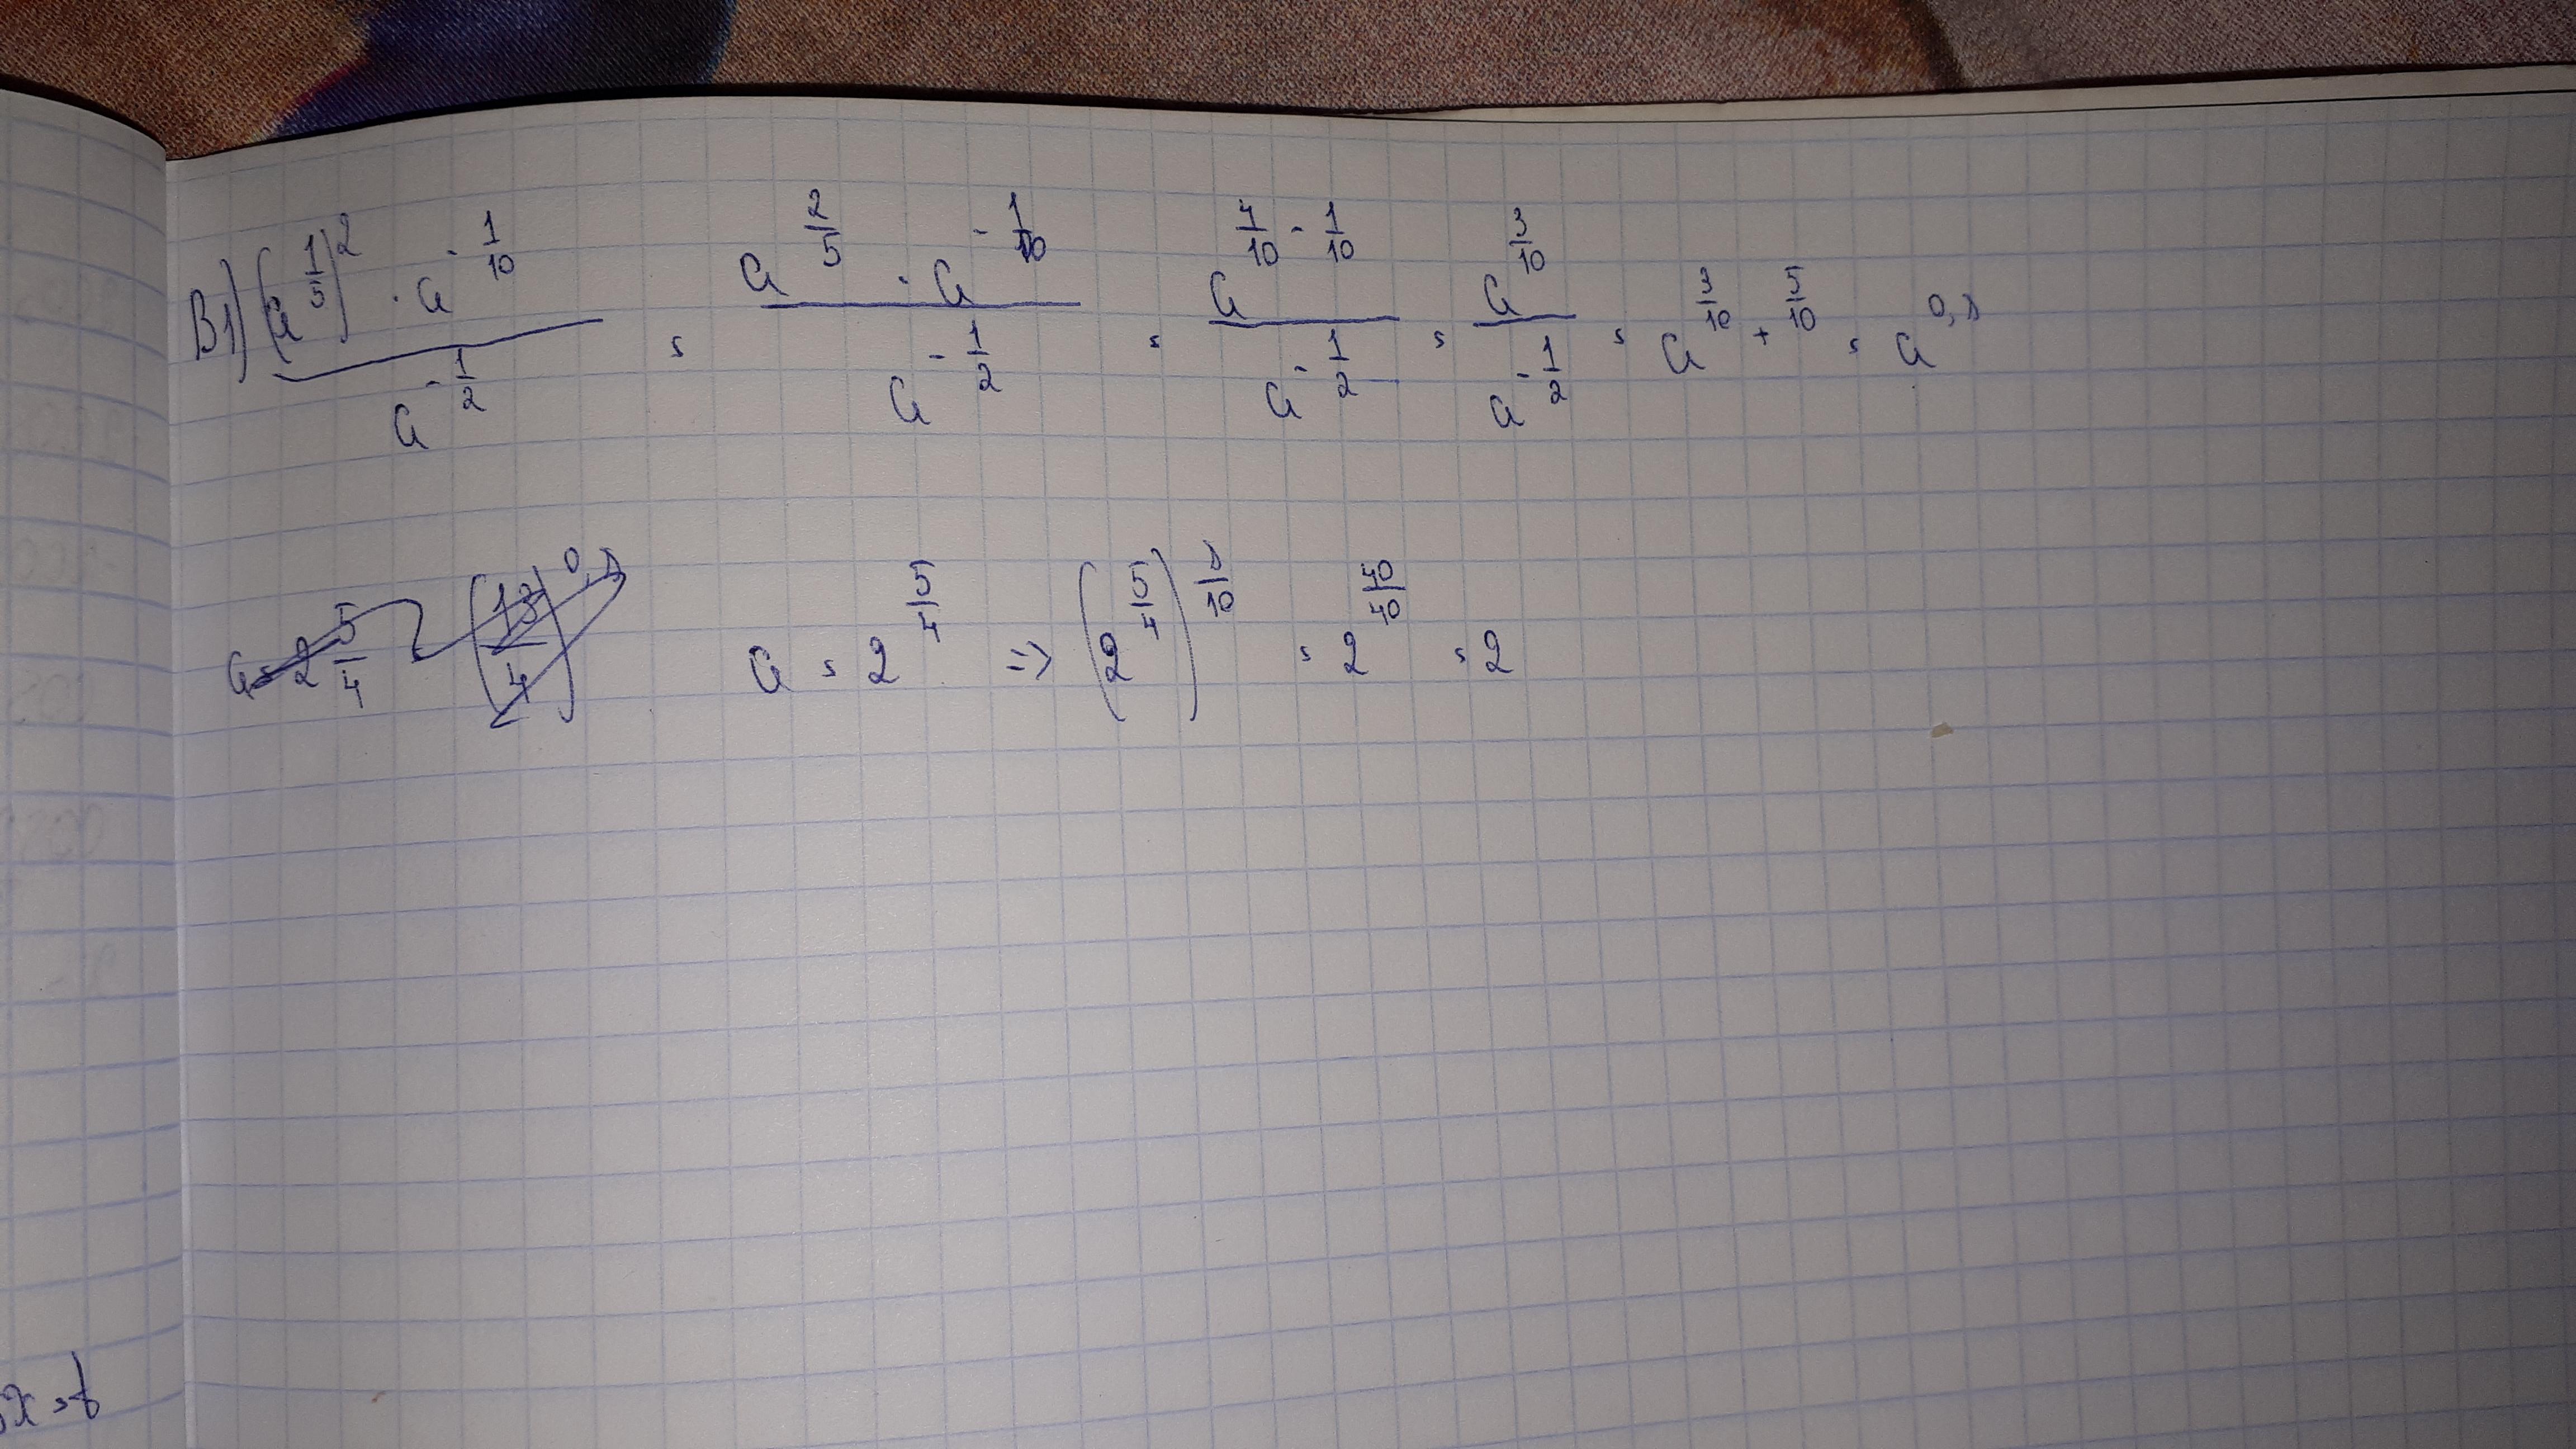 B1) (a^(1/5))^2 · a^(-1/10) / a^(-1/2) = a^(2/5) · a^(-1/10) / a^(-1/2) = a^(4/10 - 1/10) / a^(-1/2) = a^(3/10) / a^(-1/2) = a^(3/10 + 5/10) = a^(0,8)
a = 2 5/4 (13/4)^(0,8) a = 2^(5/4) => (2^(5/4))^(8/10) = 2^(40/40) = 2
x = t